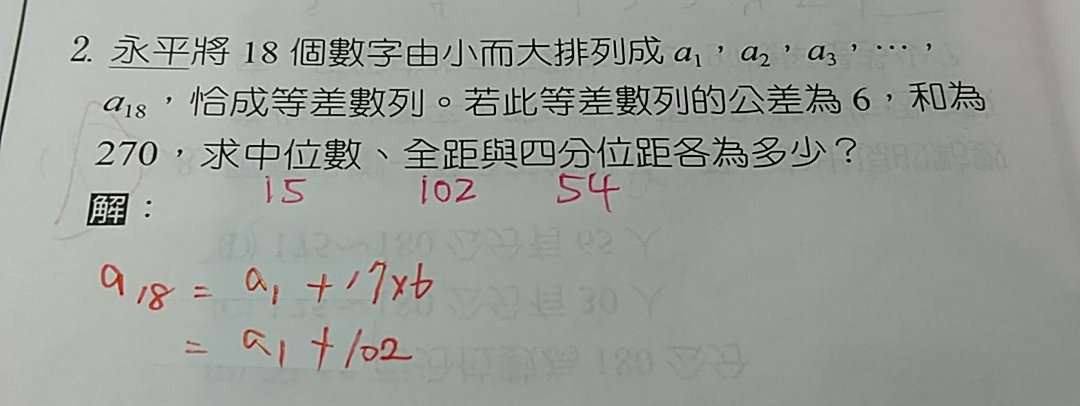 2. 永平將 18 個數字由小而大排列成 a₁，a₂，a₃，…，
a₁₈，恰成等差數列。若此等差數列的公差為 6，和為
270，求中位數、全距與四分位距各為多少？
15 102 54
解：
a₁₈ = a₁ + 17×6
= a₁ + 102